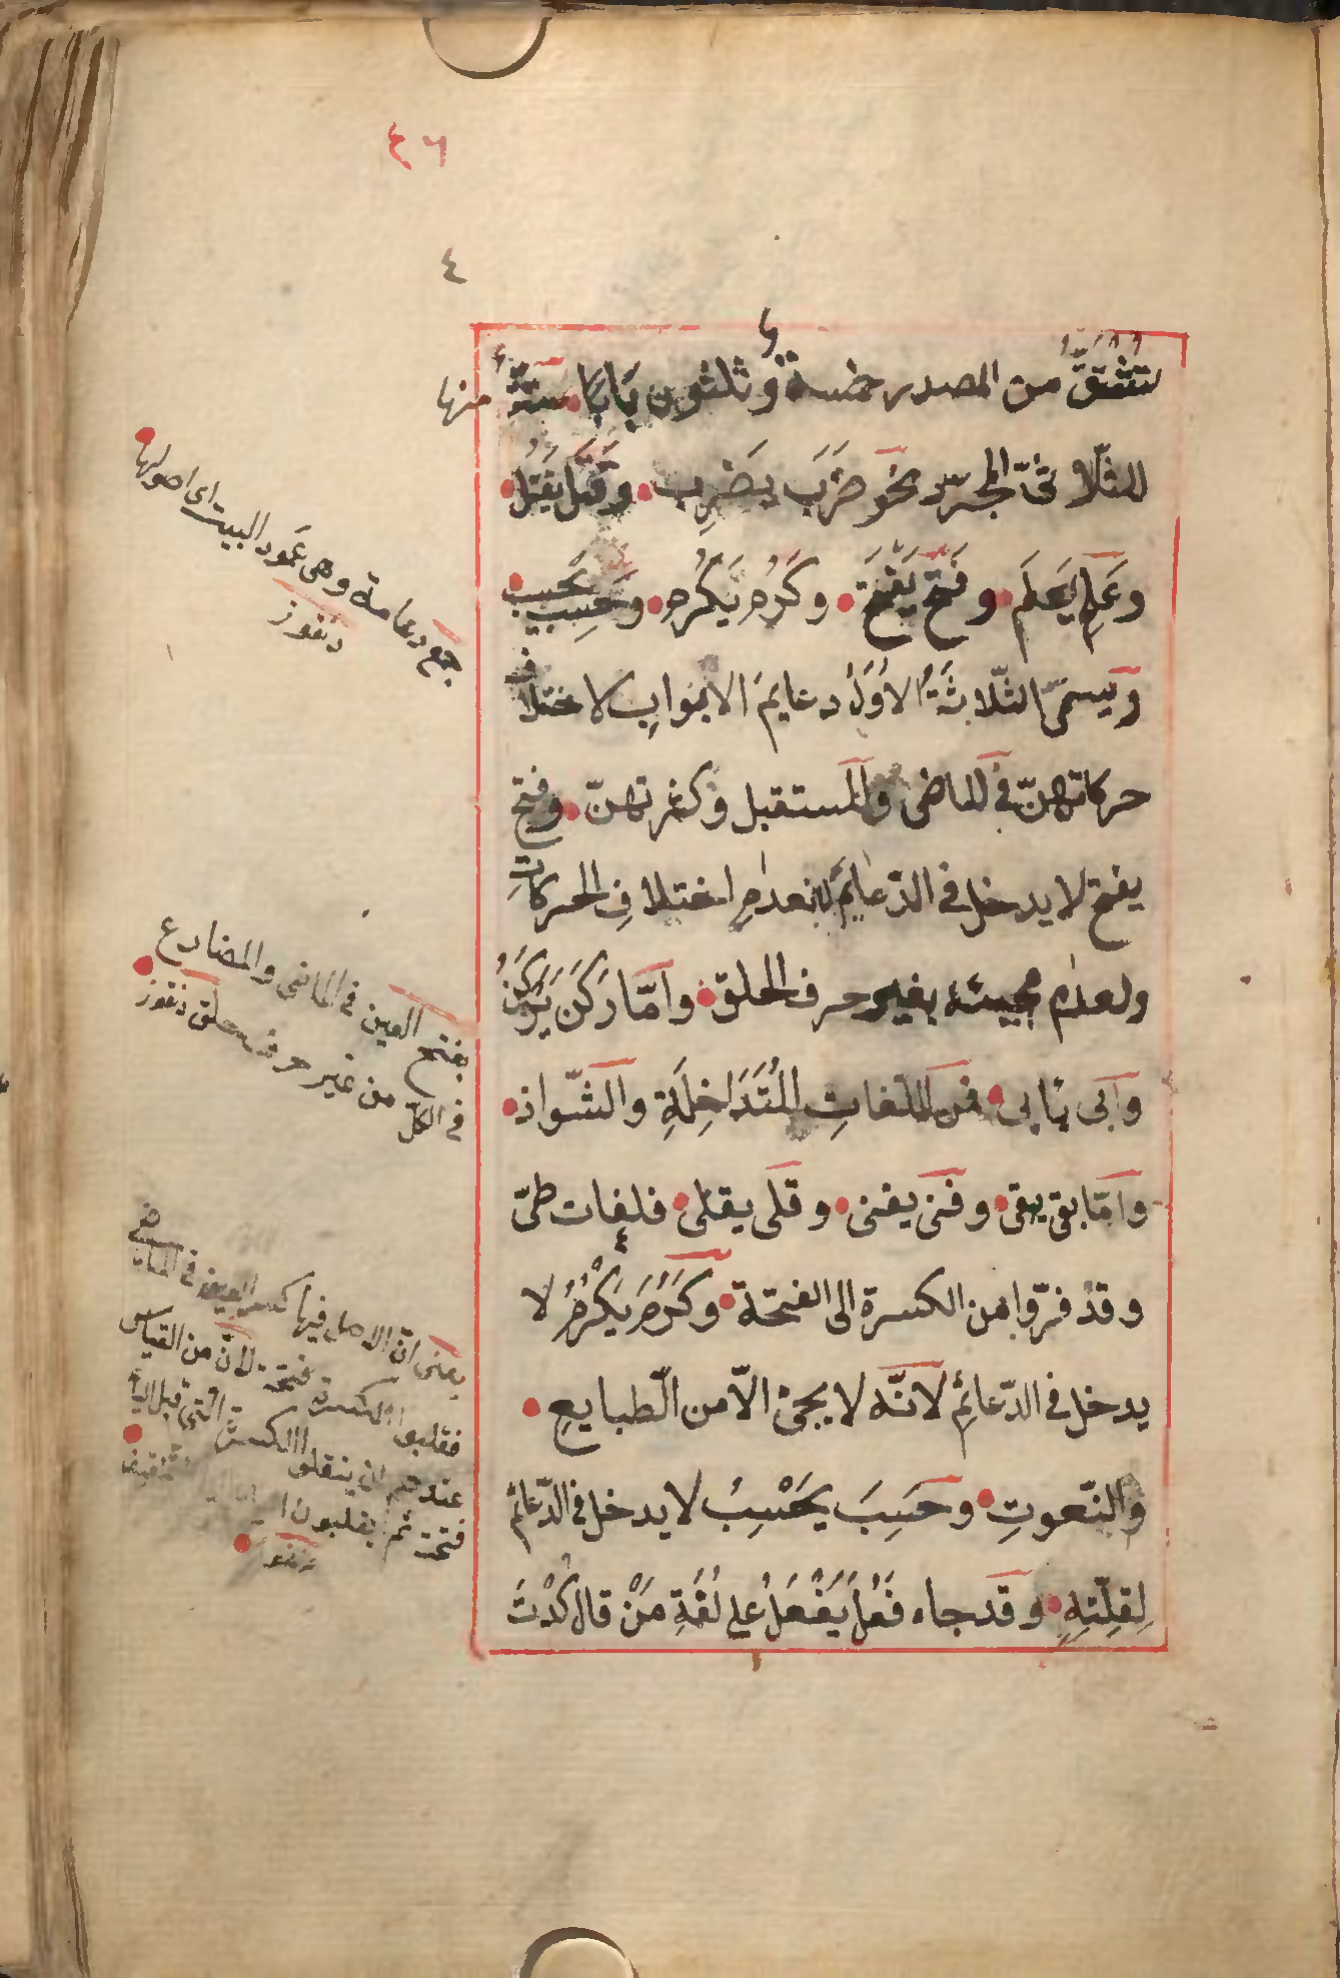 ٤٦
٤
تُشْتَقُّ من المصدر خمسة وثلثون بَابًا ستّةٌ منها
للثّلاثىّ المجرّد نحو ضَرَبَ يَضْرِب وقَتَلَ يَقْتُلُ
وَعَلِمَ يَعلَم وفَتَحَ يَفْتَح وكَرُم يَكْرُم وحَسِبَ يحسِب
ويسمّى الثّلاثَةُ الاُوَلُ دعايمَ الابوابِ لاختلاف
حركاتهنّ فى الماضى والمستقبل وكثرتهنّ وفتح
يفتح لا يدخل فى الدّعائمِ لانعدامِ اختلافِ الحركاتِ
ولعدم مجيئه بغير حرف الحلق وامّا رَكَنَ يَرْكَنُ
وَابى يَابى فمن اللغاتِ المُتَدَاخِلَةِ والشّواذ
وامّا بقى يبقى وفَنى يفنى وقلى يقلى فلغات طىّ
وقد فرّوا من الكسرة الى الفتحة وكَرُمَ يَكْرُمُ لا
يدخل فى الدّعائمِ لانّه لا يجئ الّا من الطّبايعِ
والنّعوتِ وحَسِبَ يَحْسِبُ لا يدخل فى الدّعائم
لِقِلّتِهِ وقد جاء فَعُلَ يَفْعَلُ على لُغَةِ مَنْ قال كُدْتَ
جمع دعامة وهى عَمود البيت اى اصولها
دنقوز
بفتح العين فى الماضى والمضارع
فى الكلّ من غير حرف حلق دنقوز
يعنى انّ الاصل فيها كسر العين فى الماضى
فقلبوا الكسرة فتحة لانّ من القياس
عندهم ان ينقلوا الكسرة التى قبل الياء
فتحة ثم يقلبون
دنقوز